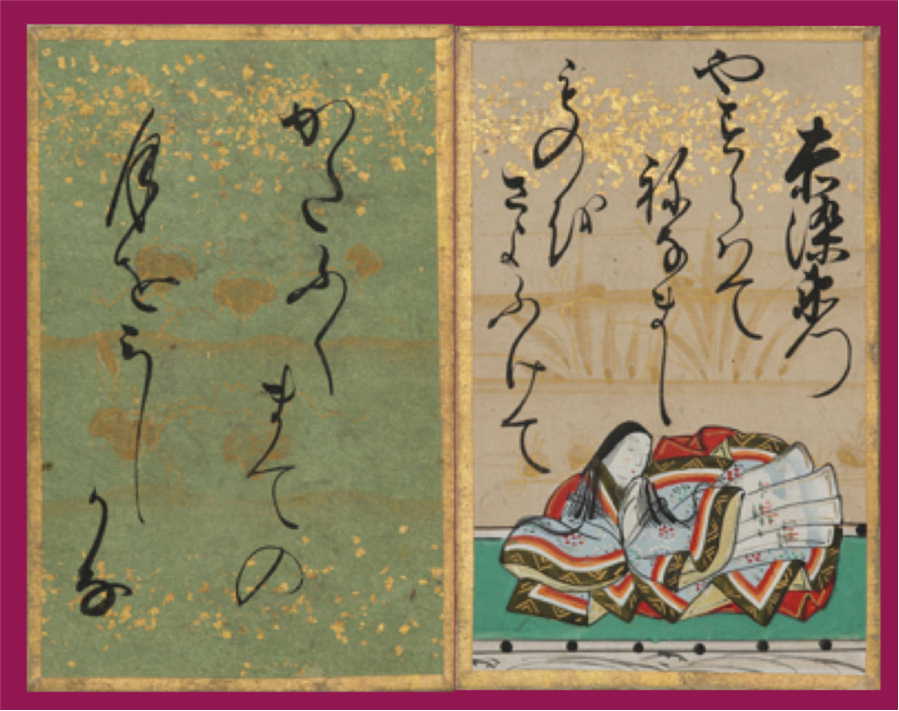 赤染衛門
やすらはて
ねなまし
ものを
さよふけて
かたふく
まての
月をみし
かな